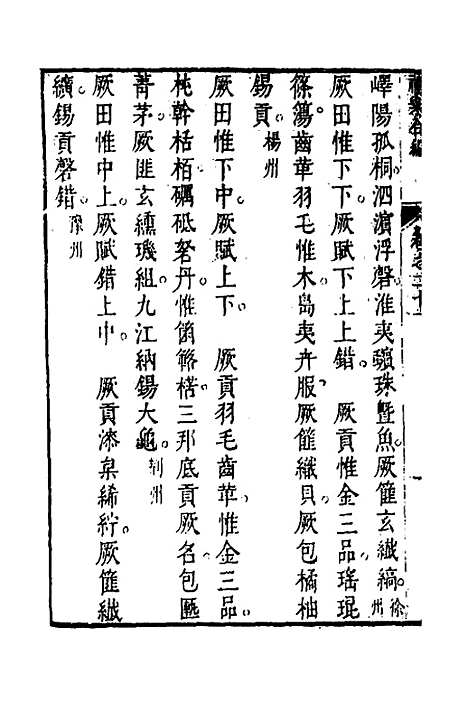 嶧陽孤桐泗濵浮磬淮夷蠙珠暨魚厥篚玄纎縞徐州
厥田惟下下厥賦下上上錯　厥貢惟金三品瑤琨
篠簜齒革羽毛惟木島夷卉服厥篚纎貝厥包橘柚
錫貢揚州
厥田惟下中厥賦上下　厥貢羽毛齒革惟金三品
杶幹栝栢礪砥砮丹惟箘簵楛三邦底貢厥名包匭
菁茅厥匪玄纁璣組九江納錫大龜荆州
厥田惟中上厥賦錯上中　厥貢漆枲絺紵厥篚纎
纊錫貢磬錯豫州